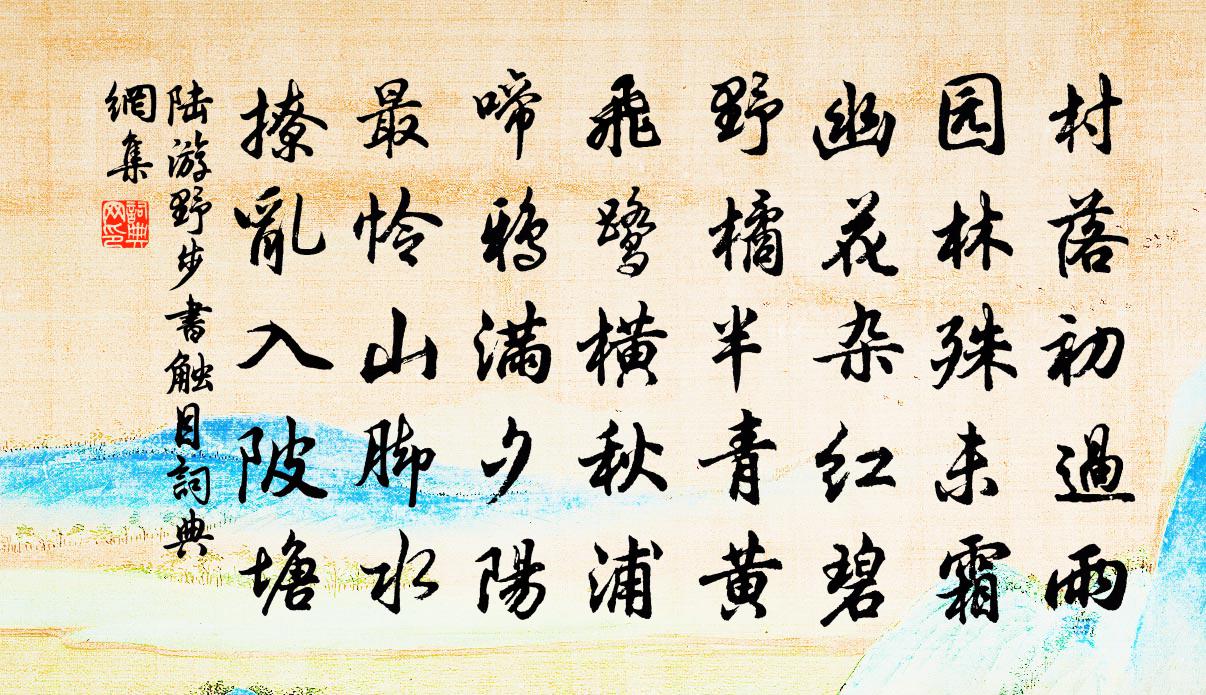 村落初過雨
园林殊未霜
幽花杂红碧
野橘半青黄
飛鷺横秋浦
啼鴉满夕陽
最怜山脚水
撩亂入陂塘
陆游野步書触目詞典
網集
詞典
网印